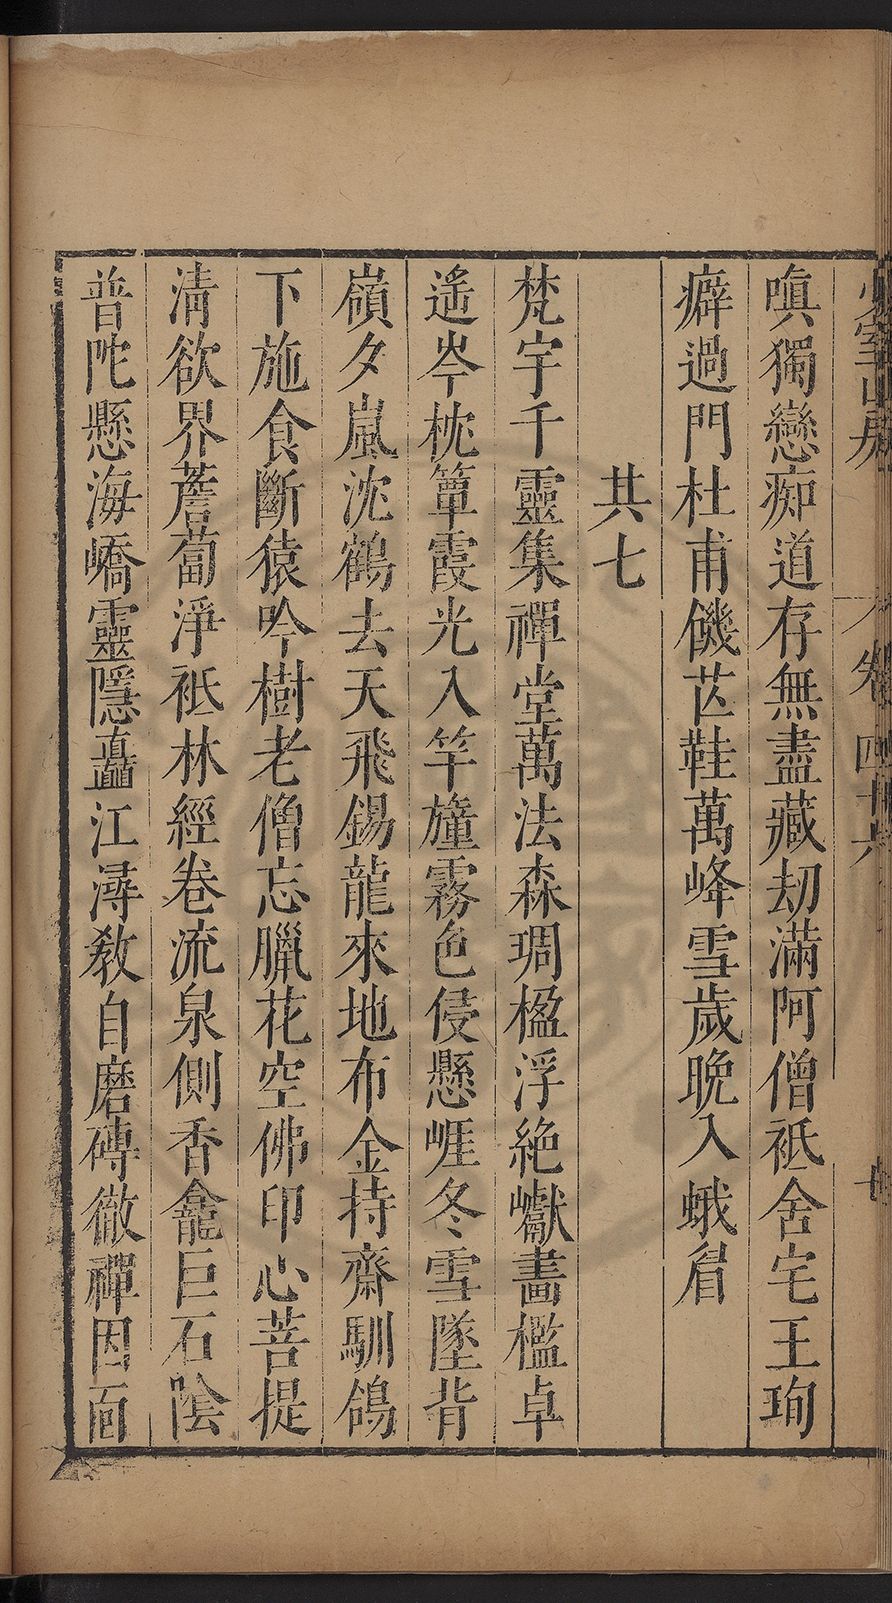 少室山房
卷四十六
嗔獨戀痴道存無盡藏刧滿阿僧祇舍宅王珣
癖過門杜甫饑芒鞋萬峰雪歲晚入蛾眉
共七
梵宇千靈集禪堂萬法森琱楹浮絶巘畵檻卓
遥岑枕簟霞光入竿𥫂霧色侵懸崕冬雪墜背
嶺夕嵐沈鶴去天飛錫龍來地布金持齋馴鴿
下施食斷猿吟樹老僧忘臘花空佛印心菩提
清欲界薝蔔淨祇林經卷流泉側香龕巨石陰
普陀懸海嶠靈隱矗江潯教自磨磚徹禪因面